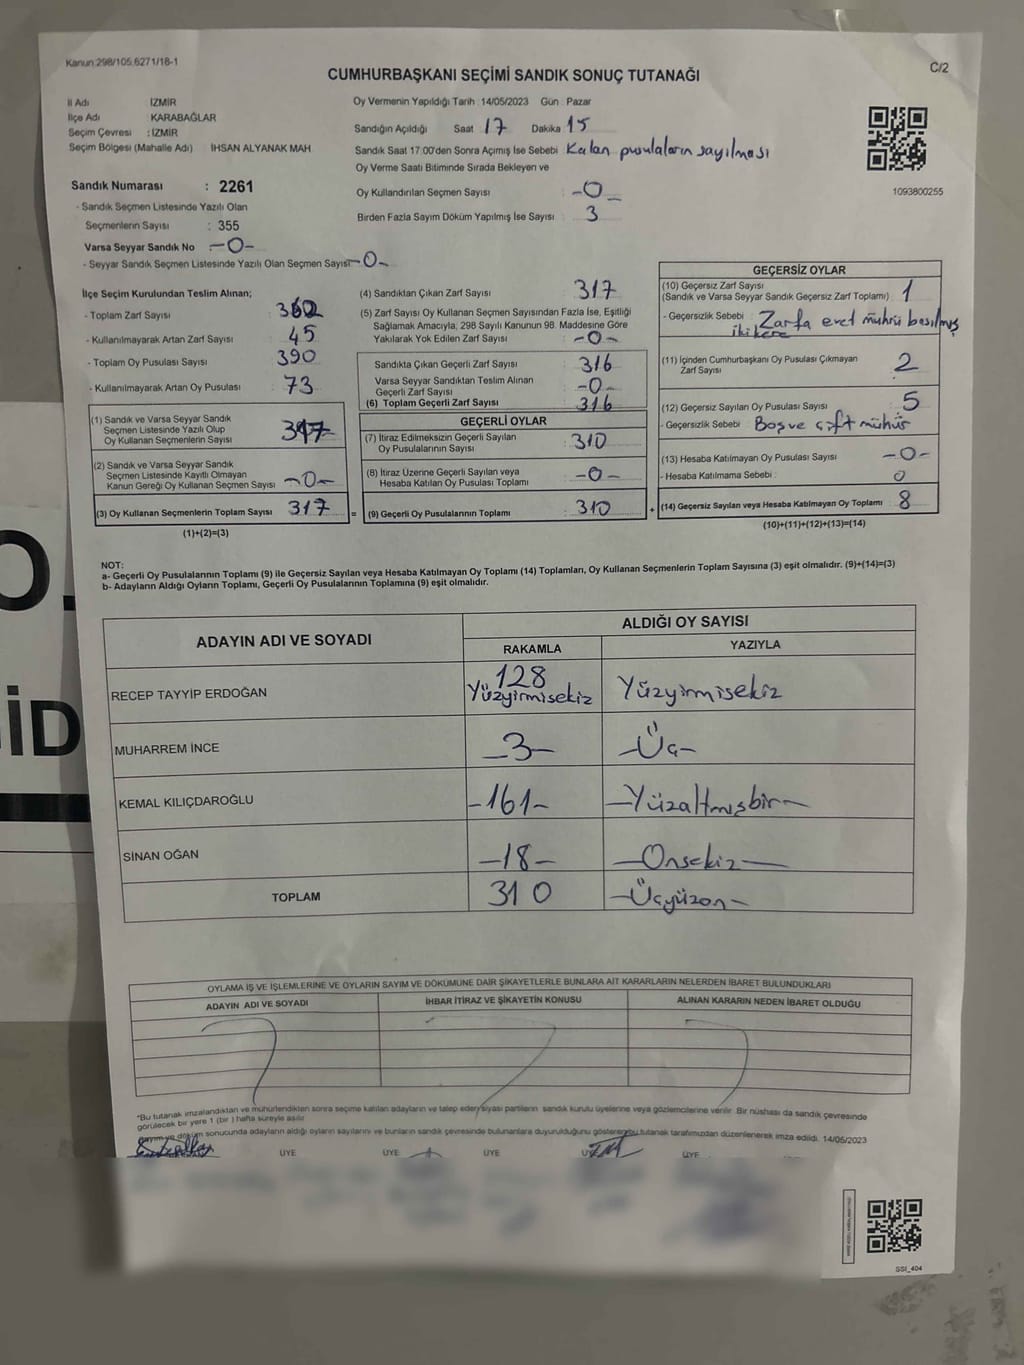 Kanun:298/105,6271/18-1
C/2
CUMHURBAŞKANI SEÇİMİ SANDIK SONUÇ TUTANAĞI
İl Adı : İZMİR
İlçe Adı : KARABAĞLAR
Seçim Çevresi : İZMİR
Seçim Bölgesi (Mahalle Adı) İHSAN ALYANAK MAH
Sandık Numarası : 2261
- Sandık Seçmen Listesinde Yazılı Olan
Seçmenlerin Sayısı : 355
Varsa Seyyar Sandık No : -0-
- Seyyar Sandık Seçmen Listesinde Yazılı Olan Seçmen Sayısı -0-
Oy Vermenin Yapıldığı Tarih :14/05/2023 Gün : Pazar
Sandığın Açıldığı Saat 17 Dakika 15
Sandık Saat 17.00'den Sonra Açımış İse Sebebi Kalan pusulaların sayılması
Oy Verme Saati Bitiminde Sırada Bekleyen ve
Oy Kullandırılan Seçmen Sayısı : -0-
Birden Fazla Sayım Döküm Yapılmış İse Sayısı : 3
1093800255
İlçe Seçim Kurulundan Teslim Alınan;
- Toplam Zarf Sayısı : 362
- Kullanılmayarak Artan Zarf Sayısı : 45
- Toplam Oy Pusulası Sayısı : 390
- Kullanılmayarak Artan Oy Pusulası : 73
(1) Sandık ve Varsa Seyyar Sandık
Seçmen Listesinde Yazılı Olup
Oy Kullanan Seçmenlerin Sayısı : 317
(2) Sandık ve Varsa Seyyar Sandık
Seçmen Listesinde Kayıtlı Olmayan
Kanun Gereği Oy Kullanan Seçmen Sayısı : -0-
(3) Oy Kullanan Seçmenlerin Toplam Sayısı : 317 =
(1)+(2)=(3)
(4) Sandıktan Çıkan Zarf Sayısı : 317
(5) Zarf Sayısı Oy Kullanan Seçmen Sayısından Fazla İse, Eşitliği
Sağlamak Amacıyla, 298 Sayılı Kanunun 98. Maddesine Göre
Yakılarak Yok Edilen Zarf Sayısı : -0-
Sandıkta Çıkan Geçerli Zarf Sayısı : 316
Varsa Seyyar Sandıktan Teslim Alınan
Geçerli Zarf Sayısı : -0-
(6) Toplam Geçerli Zarf Sayısı : 316
GEÇERLİ OYLAR
(7) İtiraz Edilmeksizin Geçerli Sayılan
Oy Pusulalarının Sayısı : 310
(8) İtiraz Üzerine Geçerli Sayılan veya
Hesaba Katılan Oy Pusulası Toplamı : -0-
(9) Geçerli Oy Pusulalarının Toplamı : 310 +
GEÇERSİZ OYLAR
(10) Geçersiz Zarf Sayısı
(Sandık ve Varsa Seyyar Sandık Geçersiz Zarf Toplamı) : 1
- Geçersizlik Sebebi : Zarfa evet mührü basılmış
iki kere
(11) İçinden Cumhurbaşkanı Oy Pusulası Çıkmayan
Zarf Sayısı : 2
(12) Geçersiz Sayılan Oy Pusulası Sayısı : 5
- Geçersizlik Sebebi : Boş ve çift mühür
(13) Hesaba Katılmayan Oy Pusulası Sayısı : -0-
- Hesaba Katılmama Sebebi : 0
(14) Geçersiz Sayılan veya Hesaba Katılmayan Oy Toplamı : 8
(10)+(11)+(12)+(13)=(14)
NOT:
a- Geçerli Oy Pusulalarının Toplamı (9) ile Geçersiz Sayılan veya Hesaba Katılmayan Oy Toplamı (14) Toplamları, Oy Kullanan Seçmenlerin Toplam Sayısına (3) eşit olmalıdır. (9)+(14)=(3)
b- Adayların Aldığı Oyların Toplamı, Geçerli Oy Pusulalarının Toplamına (9) eşit olmalıdır.
ADAYIN ADI VE SOYADI
ALDIĞI OY SAYISI
RAKAMLA YAZIYLA
RECEP TAYYİP ERDOĞAN 128 Yüzyirmisekiz Yüzyirmisekiz
MUHARREM İNCE -3- -Üç-
KEMAL KILIÇDAROĞLU -161- -Yüzaltmışbir-
SİNAN OĞAN -18- -Onsekiz-
TOPLAM 310 -Üçyüzon-
OYLAMA İŞ VE İŞLEMLERİNE VE OYLARIN SAYIM VE DÖKÜMÜNE DAİR ŞİKAYETLERLE BUNLARA AİT KARARLARIN NELERDEN İBARET BULUNDUKLARI
ADAYIN ADI VE SOYADI İHBAR İTİRAZ VE ŞİKAYETİN KONUSU ALINAN KARARIN NEDEN İBARET OLDUĞU
*Bu tutanak imzalandıktan ve mühürlendikten sonra seçime katılan adayların ve talep eden siyasi partilerin sandık kurulu üyelerine veya gözlemcilerine verilir. Bir nüshası da sandık çevresinde
görülecek bir yere 1 (bir) hafta süreyle asılır.
döküm sonucunda adayların aldığı oyların sayılarını ve bunların sandık çevresinde bulunanlara duyurulduğunu gösteren bu tutanak tarafımızdan düzenlenerek imza edildi. 14/05/2023
ÜYE ÜYE ÜYE ÜYE ÜYE
SSI_404
O.
İD